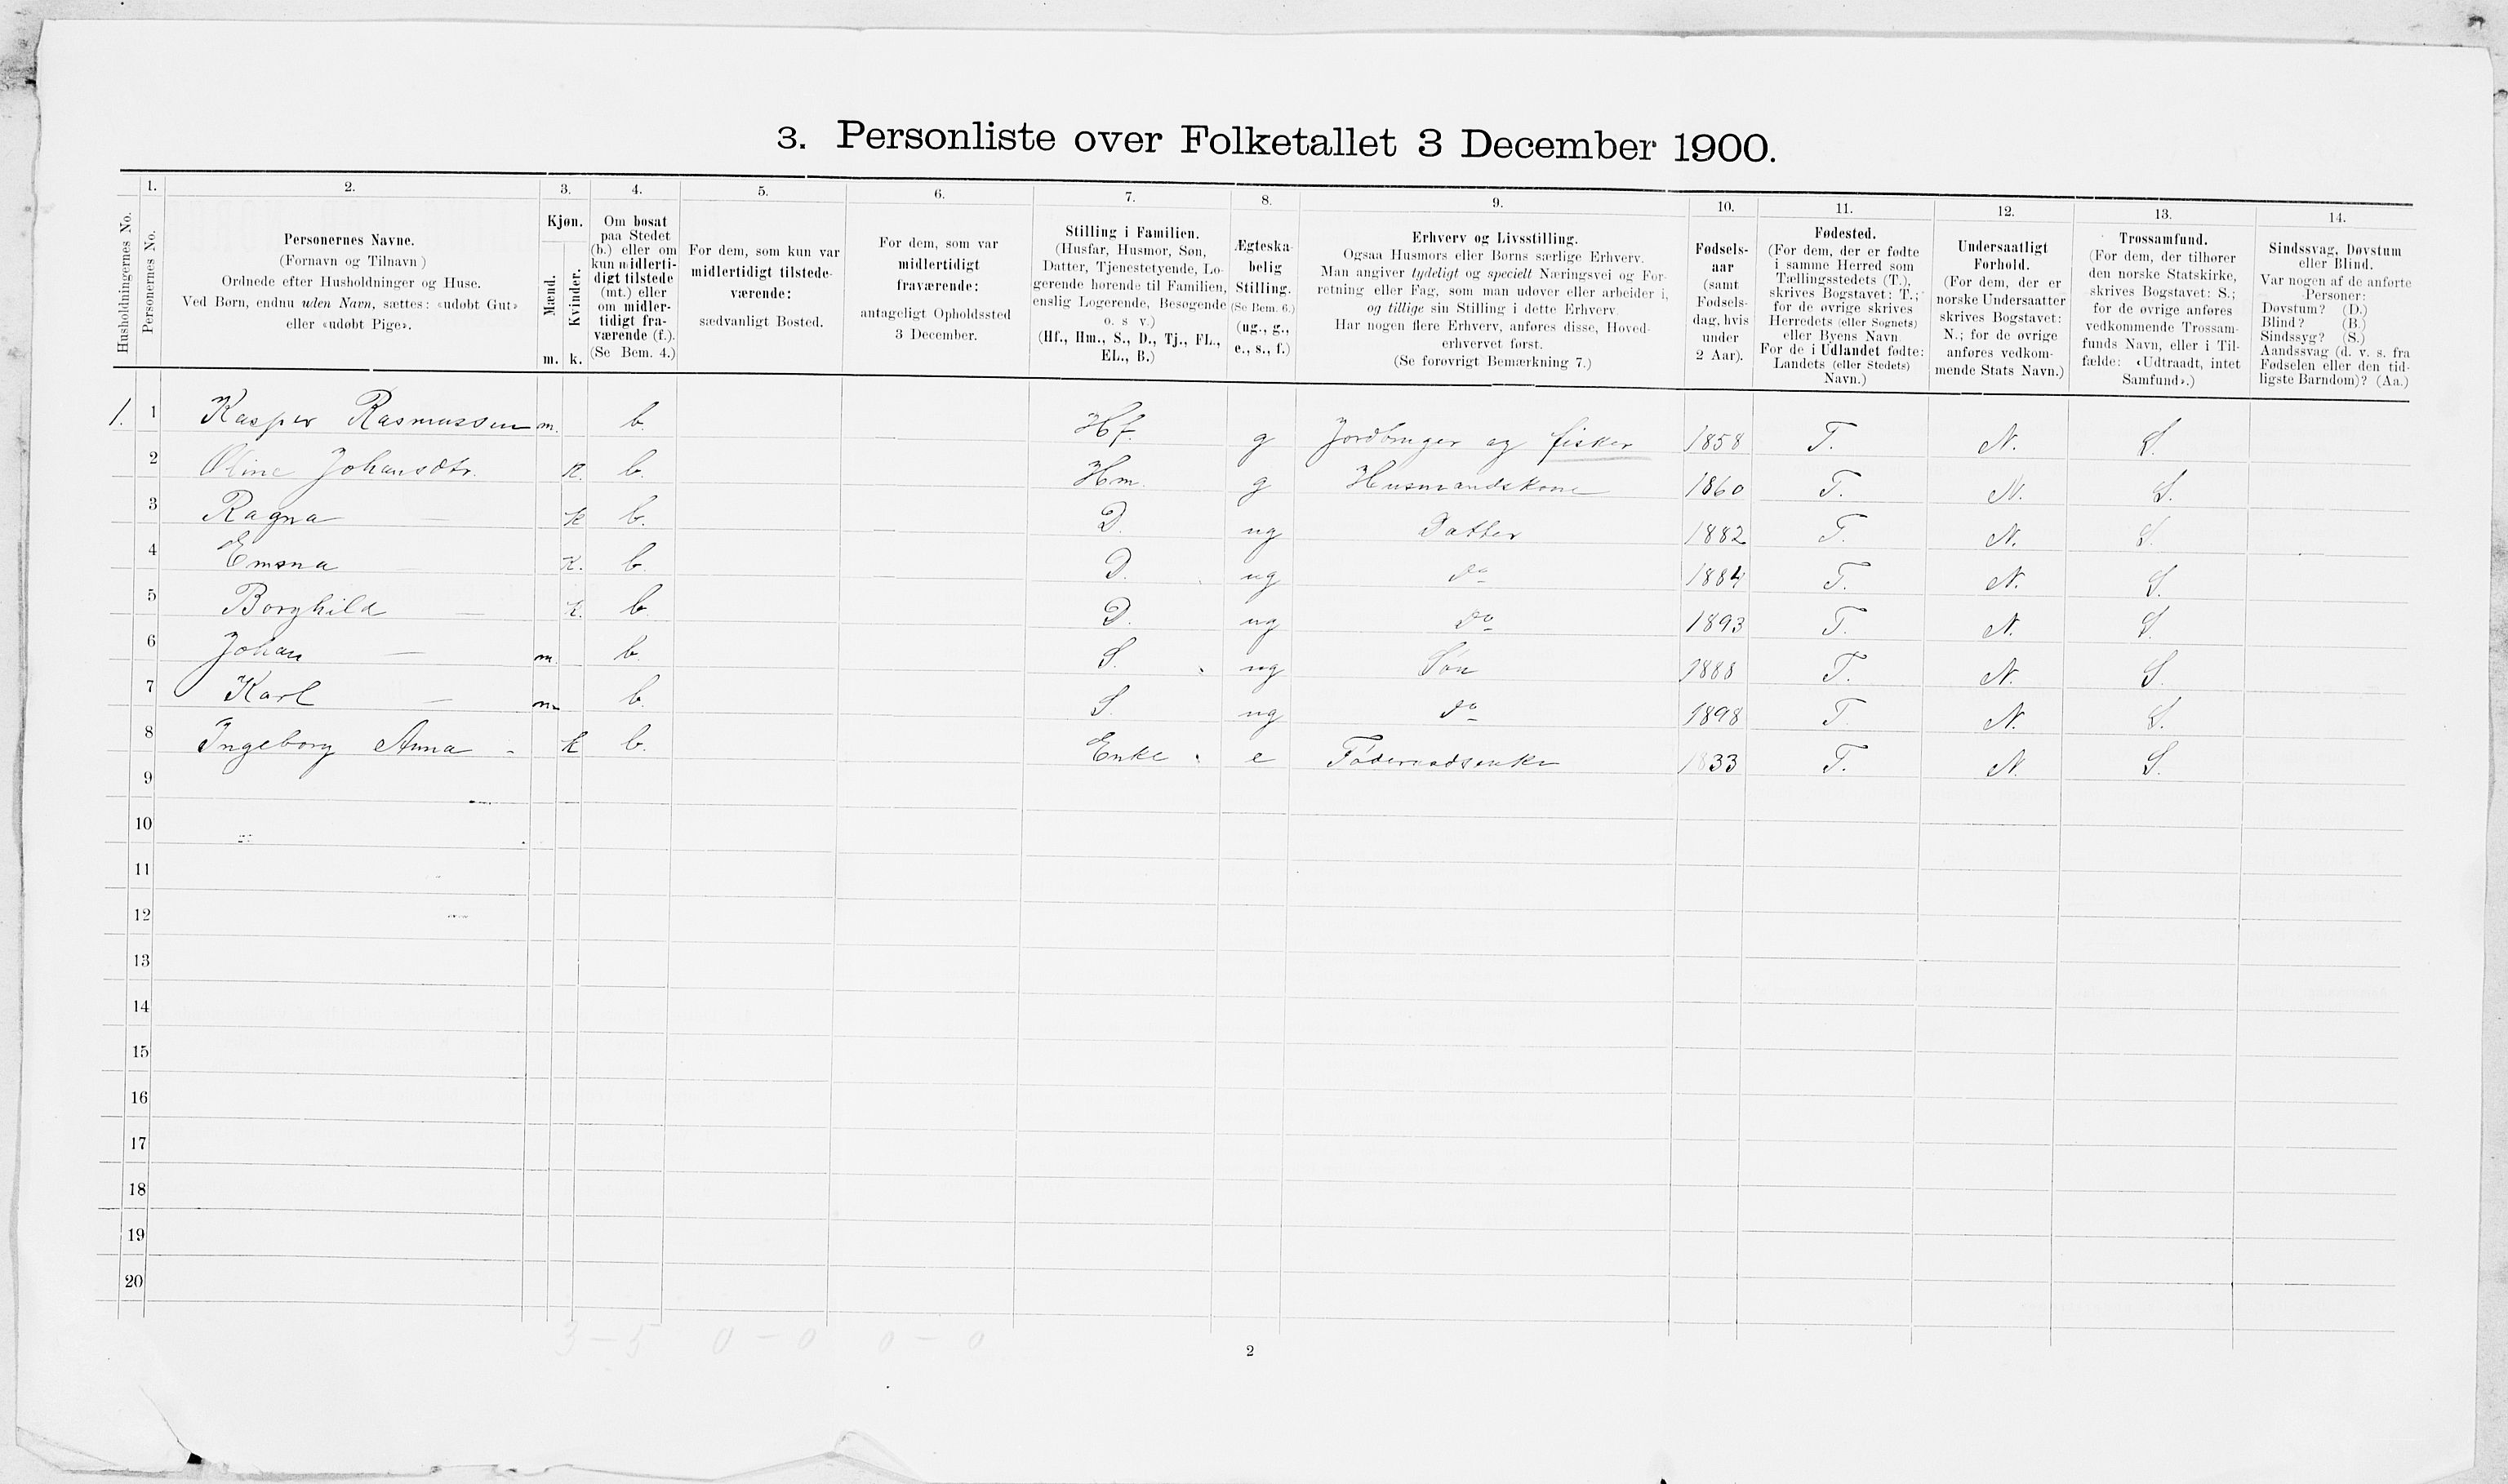 3. Personliste over Folketallet 3 December 1900.
1. 2. 3. 4. 5. 6. 7. 8. 9. 10. 11. 12. 13. 14.
Husholdningernes No.
Personernes No.
Personernes Navne.
(Fornavn og Tilnavn)
Ordnede efter Husholdninger og Huse.
Ved Børn, endnu uden Navn, sættes: «udøbt Gut»
eller «udøbt Pige».
Kjøn.
Mænd.
Kvinder.
m. k.
Om bosat
paa Stedet
(b.) eller om
kun midlerti-
digt tilstede
(mt.) eller
om midler-
tidigt fra-
værende (f.).
(Se Bem. 4.)
For dem, som kun var
midlertidigt tilstede-
værende:
sædvanligt Bosted.
For dem, som var
midlertidigt
fraværende:
antageligt Opholdssted
3 December.
Stilling i Familien.
(Husfar, Husmor, Søn,
Datter, Tjenestetyende, Lo-
gerende hørende til Familien,
enslig Logerende, Besøgende
o. s v.)
(Hf., Hm., S., D., Tj., FL.,
EL., B.)
Ægteska-
belig
Stilling.
(Se Bem. 6.)
(ug., g.,
e., s., f.)
Erhverv og Livsstilling.
Ogsaa Husmors eller Børns særlige Erhverv.
Man angiver tydeligt og specielt Næringsvei og For-
retning eller Fag, som man udøver eller arbeider i,
og tillige sin Stilling i dette Erhverv.
Har nogen flere Erhverv, anføres disse, Hoved-
erhvervet først.
(Se forøvrigt Bemærkning 7.)
Fødsels-
aar
(samt
Fødsels-
dag, hvis
under
2 Aar).
Fødested.
(For dem, der er fødte
i samme Herred som
Tællingsstedets (T.),
skrives Bogstavet: T.;
for de øvrige skrives
Herredets (eller Sognets)
eller Byens Navn
For de i Udlandet fødte:
Landets (eller Stedets)
Navn.)
Undersaatligt
Forhold.
(For dem, der er
norske Undersaatter
skrives Bogstavet:
N.; for de øvrige
anføres vedkom-
mende Stats Navn.)
Trossamfund.
(For dem, der tilhører
den norske Statskirke,
skrives Bogstavet: S.;
for de øvrige anføres
vedkommende Trossam-
funds Navn, eller i Til-
fælde: «Udtraadt, intet
Samfund».)
Sindssvag, Døvstum
eller Blind.
Var nogen af de anførte
Personer:
Døvstum? (D.)
Blind? (B.)
Sindssyg? (S.)
Aandssvag (d. v. s. fra
Fødselen eller den tid-
ligste Barndom)? (Aa.)
1. 1 Kasper Rasmussen m. b. Hf. g Jordbruger og fisker 1858 T. N. S.
2 Oline Johansdtr. K. b. Hm. g Husmandskone 1860 T. N. S.
3 Ragna — k b. D. ug Datter 1882 T. N. S.
4 Emma — K. b. D. ug do 1884 T. N. S.
5 Borghild — k. b. D. ug do 1893 T. N. S.
6 Johan — m. b. S. ug Søn 1888 T. N. S.
7 Karl — m b. S. ug do 1898 T. N. S.
8 Ingeborg Anna - k b. Enke e Føderaadsenke 1833 T. N. S.
9
10
11
12
13
14
15
16
17
18
19
20
3 — 5 0 — 0 0 — 0
2